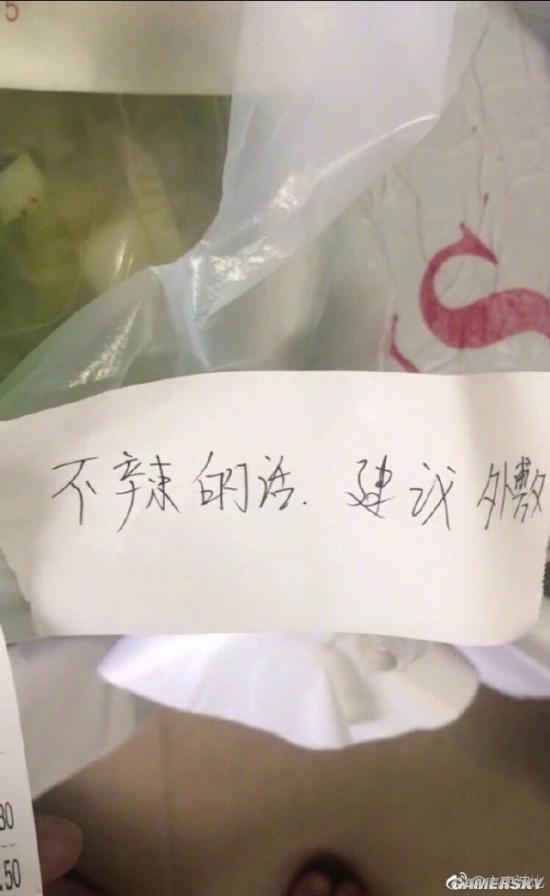 5
不辣的话.建议外敷
30
.50
GAMERSKY